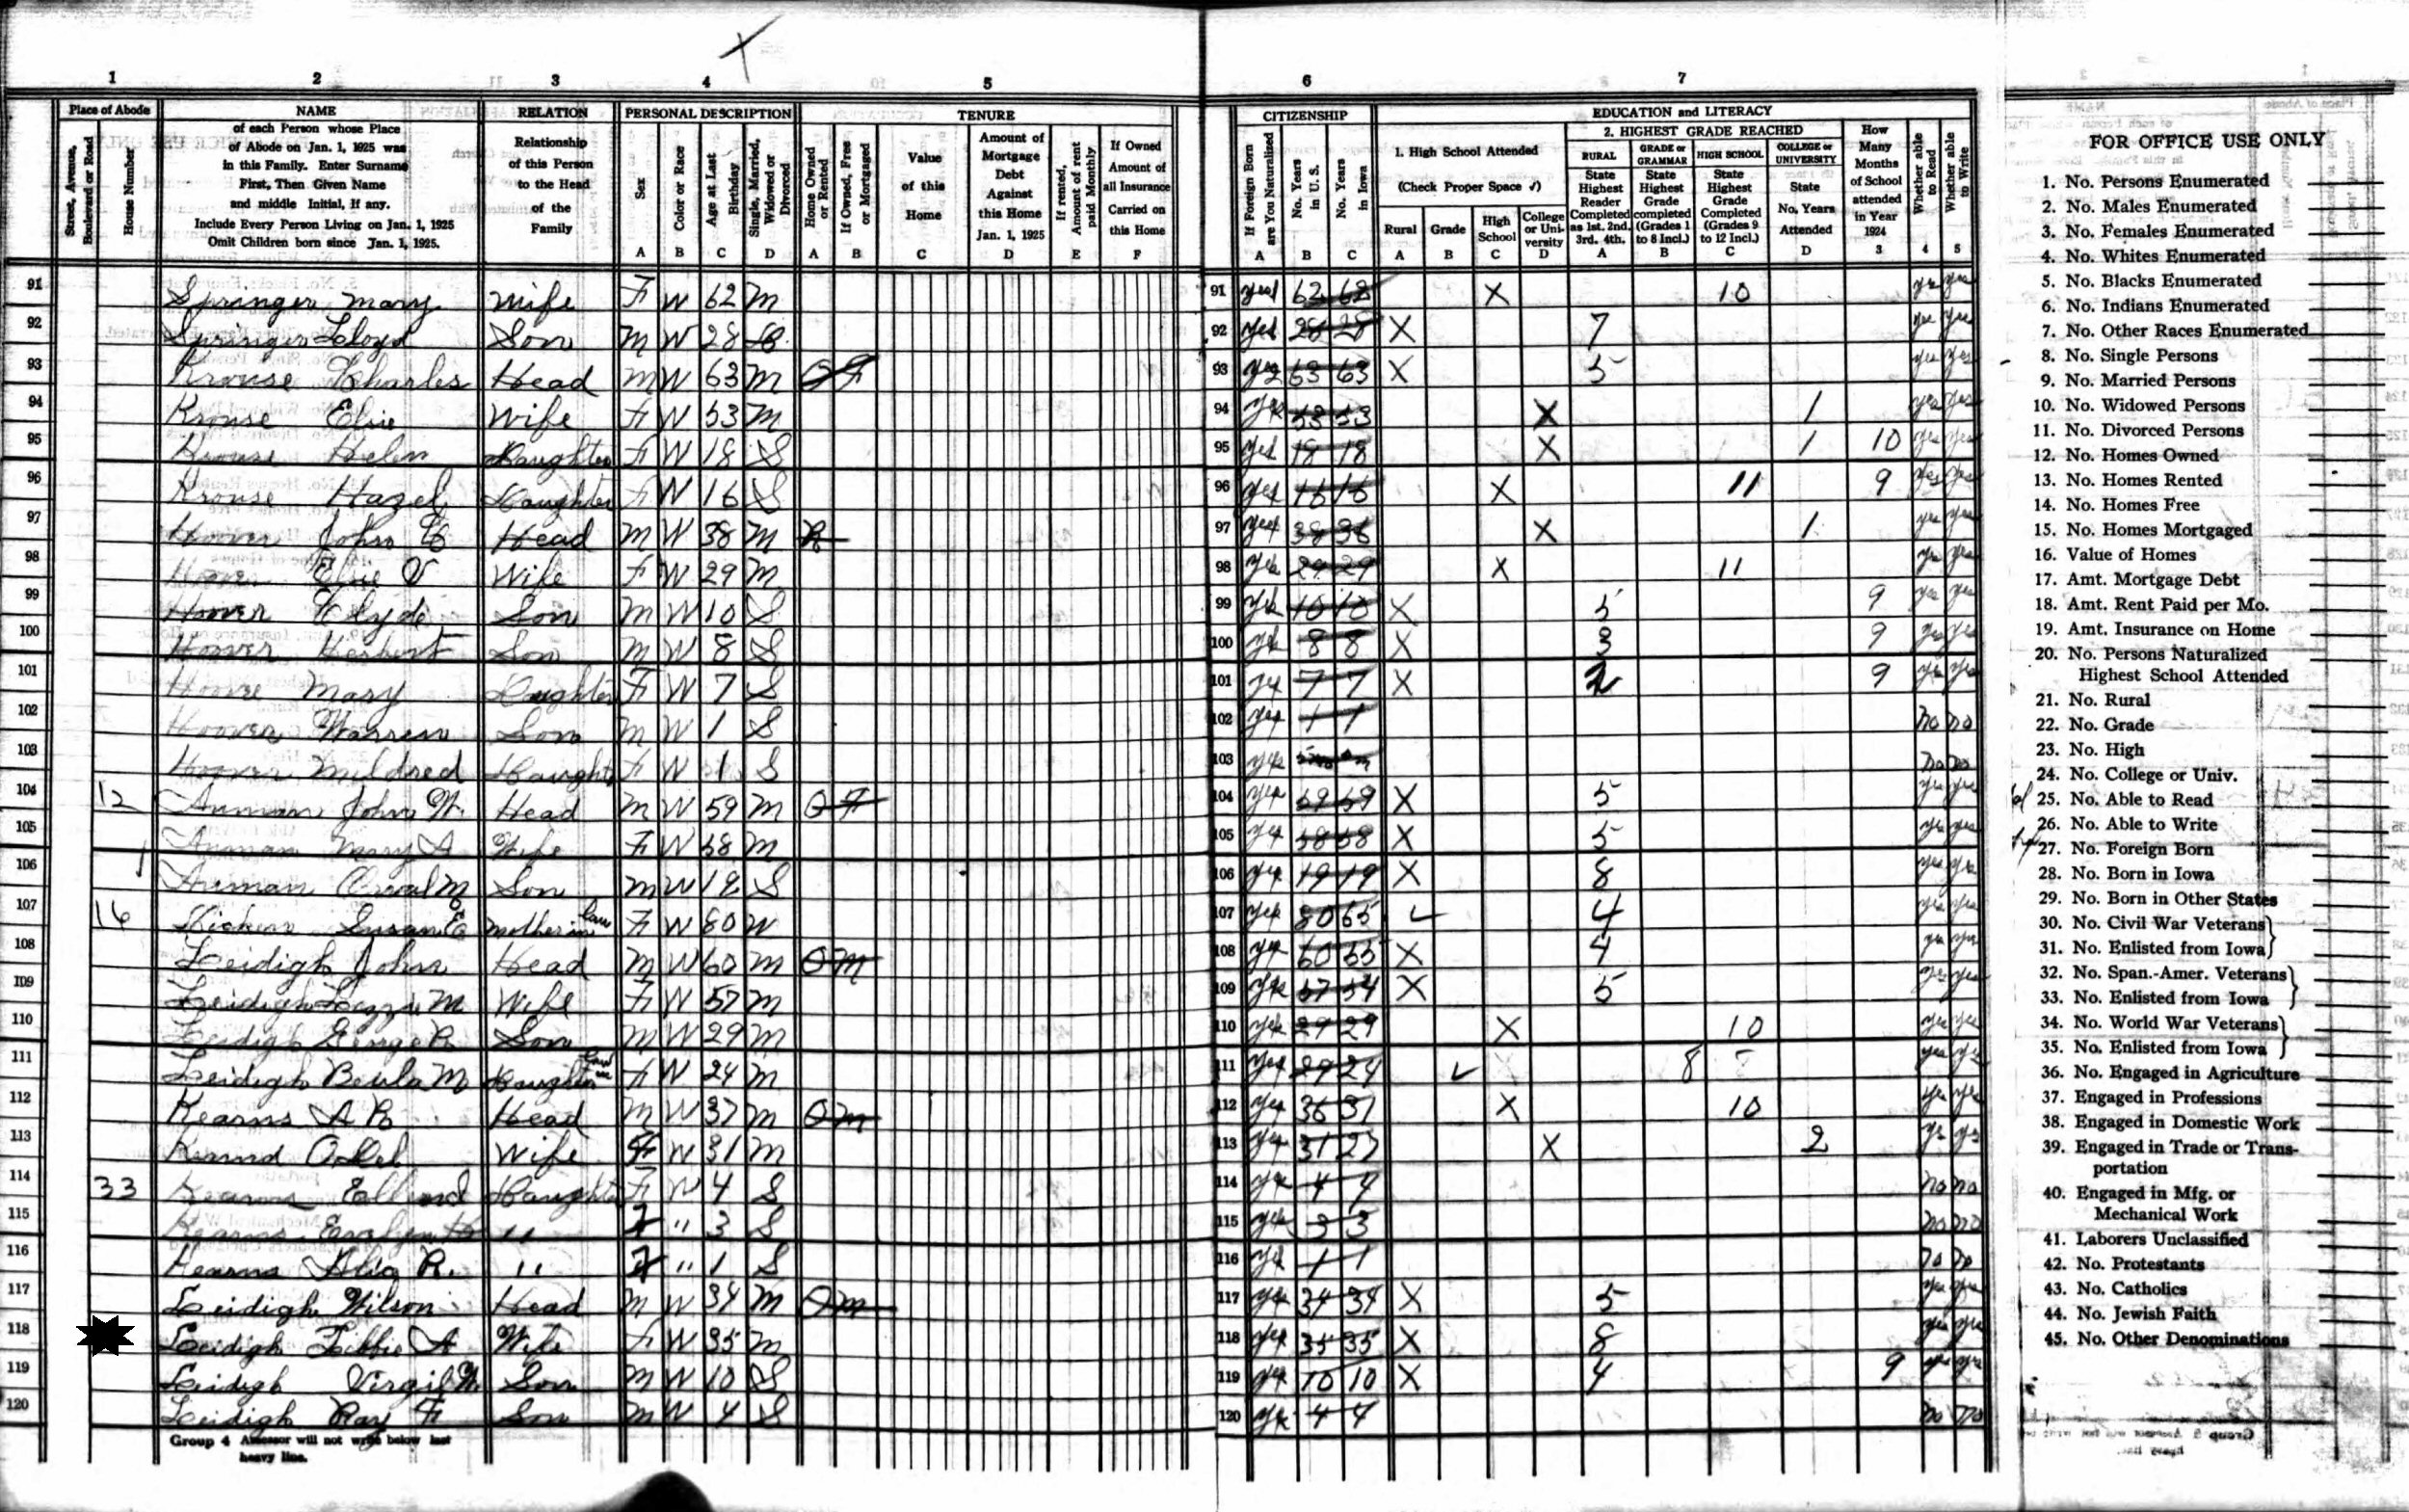 1 2 3 4 5 6 7
Place of Abode NAME RELATION PERSONAL DESCRIPTION TENURE CITIZENSHIP EDUCATION and LITERACY
Street, Avenue, Boulevard or Road
House Number
of each Person whose Place
of Abode on Jan. 1, 1925 was
in this Family. Enter Surname
First, Then Given Name
and middle Initial, if any.
Include Every Person Living on Jan. 1, 1925
Omit Children born since Jan. 1, 1925.
Relationship
of this Person
to the Head
of the
Family
Sex
Color or Race
Age at Last Birthday
Single, Married, Widowed or Divorced
Home Owned or Rented
If Owned, Free or Mortgaged
Value of this Home
Amount of Mortgage Debt Against this Home Jan. 1, 1925
If rented, Amount of rent paid Monthly
If Owned Amount of all Insurance Carried on this Home
If Foreign Born are You Naturalized
No. Years in U. S.
No. Years in Iowa
1. High School Attended
(Check Proper Space ✓)
Rural Grade High School College or University
2. HIGHEST GRADE REACHED
RURAL State Highest Reader Completed as 1st. 2nd. 3rd. 4th.
GRADE or GRAMMAR State Highest Grade completed (Grades 1 to 8 Incl.)
HIGH SCHOOL State Highest Grade Completed (Grades 9 to 12 Incl.)
COLLEGE or UNIVERSITY State No. Years Attended
How Many Months of School attended in Year 1924
Whether able to Read
Whether able to Write
A B C D A B C D E F A B C A B C D A B C D 3 4 5
91 Springer Mary Wife F W 62 M 91 yes 62 62 X 10 yes yes
92 Springer Lloyd Son M W 28 92 yes 28 28 X 7 yes yes
93 Krouse Charles Head M W 63 M O F 93 yes 63 63 X 5 yes yes
94 Krouse Elsie Wife F W 53 M 94 yes 53 53 X 1 yes yes
95 Krouse Helen Daughter F W 18 S 95 yes 18 18 X 1 10 yes yes
96 Krouse Hazel Daughter F W 16 S 96 yes 16 16 X 11 9 yes yes
97 Hoover John C Head M W 38 M R 97 yes 38 38 X 1 yes yes
98 Hoover Elsie V Wife F W 29 M 98 yes 29 29 X 11 yes yes
99 Hoover Clyde Son M W 10 S 99 yes 10 10 X 5 9 yes yes
100 Hoover Herbert Son M W 8 S 100 yes 8 8 X 3 9 yes yes
101 Hoovre Mary Daughter F W 7 S 101 yes 7 7 X 2 9 yes yes
102 Hoover Warren Son M W 1 S 102 yes 1 1 no no
103 Hoover Mildred Daught F W 1 S 103 yes no no
104 12 John W. Head M W 59 M O F 104 yes 59 59 X 5 yes yes
105 Mary A Wife F W 58 M 105 yes 58 58 X 5 yes yes
106 Orval M Son M W 19 S 106 yes 19 19 X 8 yes yes
107 16 Susan E Mother in law F W 80 W 107 yes 80 65 ✓ 4 yes yes
108 Leidigh John Head M W 60 M O M 108 yes 60 55 X 4 yes yes
109 Leidigh Lizzie M Wife F W 57 M 109 yes 57 54 X 5 yes yes
110 Leidigh George R Son M W 29 M 110 yes 29 29 X 10 yes yes
111 Leidigh Beula M Daughter in law F W 24 M 111 yes 24 ✓ 8 yes yes
112 Kearns A R Head M W 37 M O M 112 yes X 10 yes yes
113 Wife F W 31 M 113 yes 31 27 X 2 yes yes
114 33 Kearns Daughter F W 4 S 114 yes 4 4 no no
115 Kearns Evelyn " F " 3 S 115 yes 3 3 no no
116 Kearns R. " F " 1 S 116 yes 1 1 no no
117 Leidigh Wilson Head M W 34 M O M 117 yes 34 34 X 5 yes yes
118 Leidigh Libbie A Wife F W 35 M 118 yes 35 35 X 8 yes yes
119 Leidigh Virgil W. Son M W 10 S 119 yes 10 10 X 4 9 yes yes
120 Leidigh Ray F Son M W 4 S 120 yes 4 4 no no
Group 4 Assessor will not write below last
heavy line.
FOR OFFICE USE ONLY
1. No. Persons Enumerated
2. No. Males Enumerated
3. No. Females Enumerated
4. No. Whites Enumerated
5. No. Blacks Enumerated
6. No. Indians Enumerated
7. No. Other Races Enumerated
8. No. Single Persons
9. No. Married Persons
10. No. Widowed Persons
11. No. Divorced Persons
12. No. Homes Owned
13. No. Homes Rented
14. No. Homes Free
15. No. Homes Mortgaged
16. Value of Homes
17. Amt. Mortgage Debt
18. Amt. Rent Paid per Mo.
19. Amt. Insurance on Home
20. No. Persons Naturalized
Highest School Attended
21. No. Rural
22. No. Grade
23. No. High
24. No. College or Univ.
25. No. Able to Read
26. No. Able to Write
27. No. Foreign Born
28. No. Born in Iowa
29. No. Born in Other States
30. No. Civil War Veterans
31. No. Enlisted from Iowa
32. No. Span.-Amer. Veterans
33. No. Enlisted from Iowa
34. No. World War Veterans
35. No. Enlisted from Iowa
36. No. Engaged in Agriculture
37. Engaged in Professions
38. Engaged in Domestic Work
39. Engaged in Trade or Trans-
portation
40. Engaged in Mfg. or
Mechanical Work
41. Laborers Unclassified
42. No. Protestants
43. No. Catholics
44. No. Jewish Faith
45. No. Other Denominations